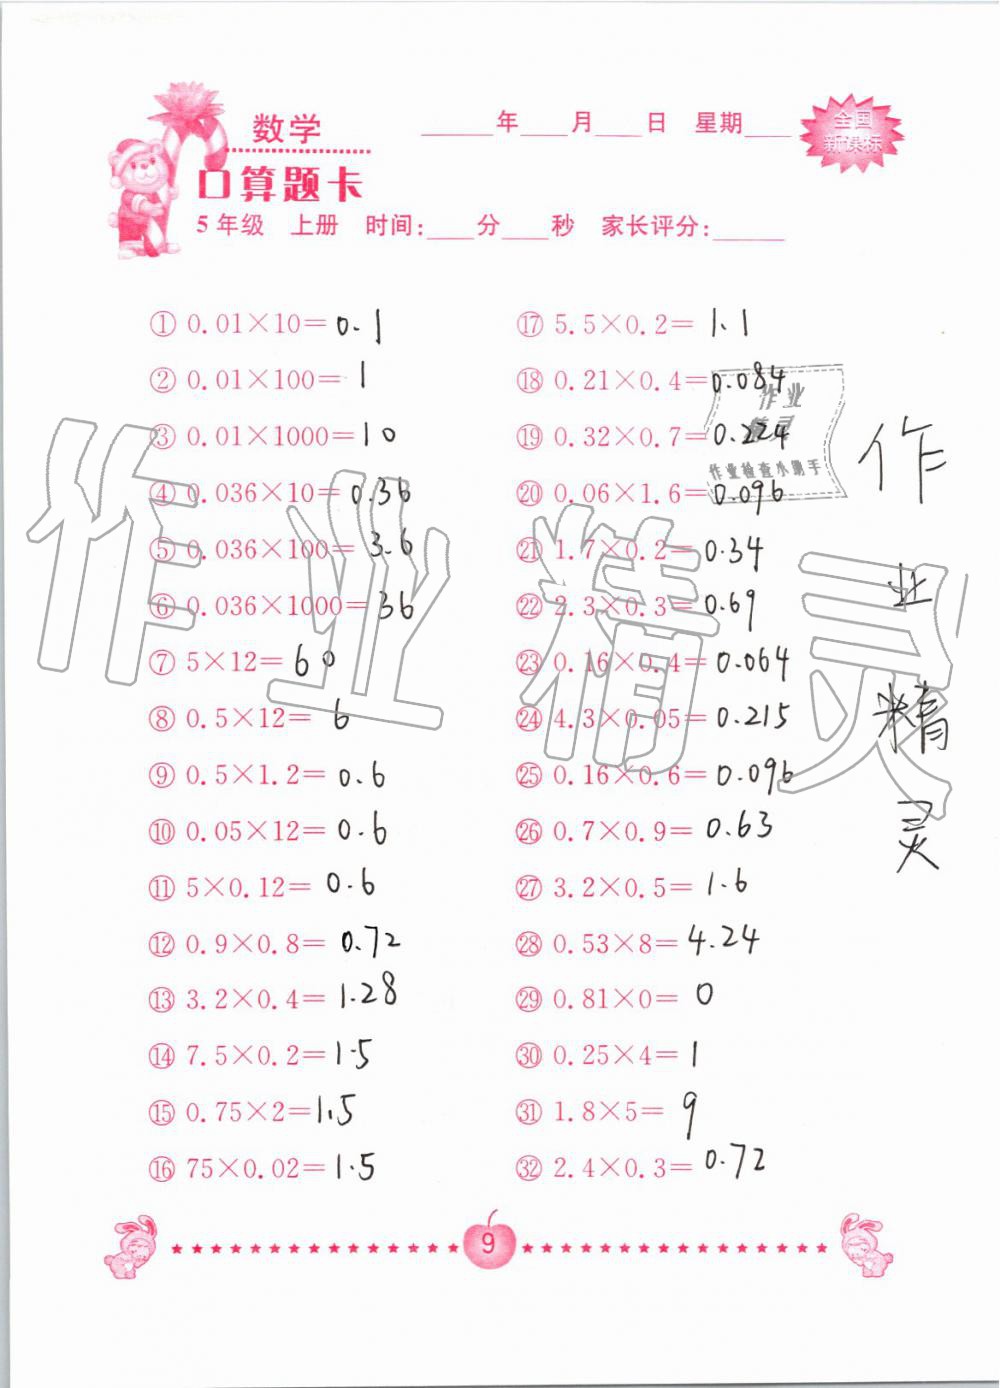 数学
____年___月___日 星期___
全国
新课标
口算题卡
5年级 上册 时间:___分___秒 家长评分:_____
① 0.01×10= 0.1
② 0.01×100= 1
③ 0.01×1000= 10
④ 0.036×10= 0.36
⑤ 0.036×100= 3.6
⑥ 0.036×1000= 36
⑦ 5×12= 60
⑧ 0.5×12= 6
⑨ 0.5×1.2= 0.6
⑩ 0.05×12= 0.6
⑪ 5×0.12= 0.6
⑫ 0.9×0.8= 0.72
⑬ 3.2×0.4= 1.28
⑭ 7.5×0.2= 1.5
⑮ 0.75×2= 1.5
⑯ 75×0.02= 1.5
⑰ 5.5×0.2= 1.1
⑱ 0.21×0.4= 0.084
⑲ 0.32×0.7= 0.224
⑳ 0.06×1.6= 0.096
㉑ 1.7×0.2= 0.34
㉒ 2.3×0.3= 0.69
㉓ 0.16×0.4= 0.064
㉔ 4.3×0.05= 0.215
㉕ 0.16×0.6= 0.096
㉖ 0.7×0.9= 0.63
㉗ 3.2×0.5= 1.6
㉘ 0.53×8= 4.24
㉙ 0.81×0= 0
㉚ 0.25×4= 1
㉛ 1.8×5= 9
㉜ 2.4×0.3= 0.72
作业
精灵
作业检查小助手
作业精灵
作
业
精
灵
9